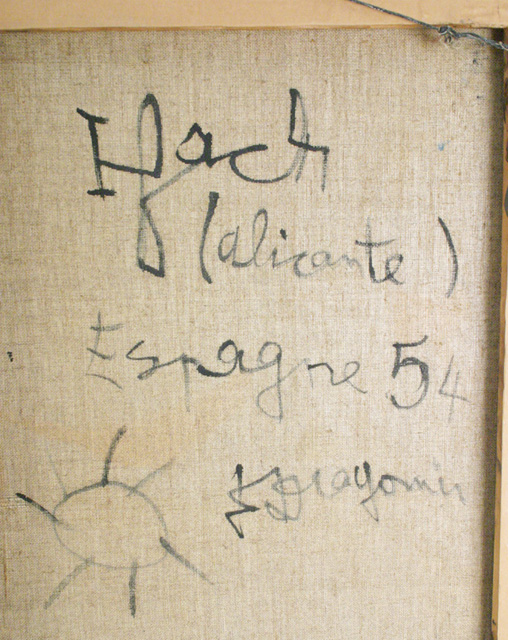 Ifach
(alicante)
Espagne 54
Dragomir